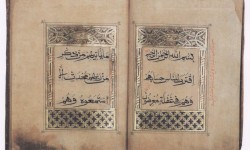 بسم الله الرحمن الرحيم
اقترب للناس حسابهم
وهم في غفلة معرضون
ما يأتيهم من ذكر
من ربهم محدث إلا
استمعوه وهم